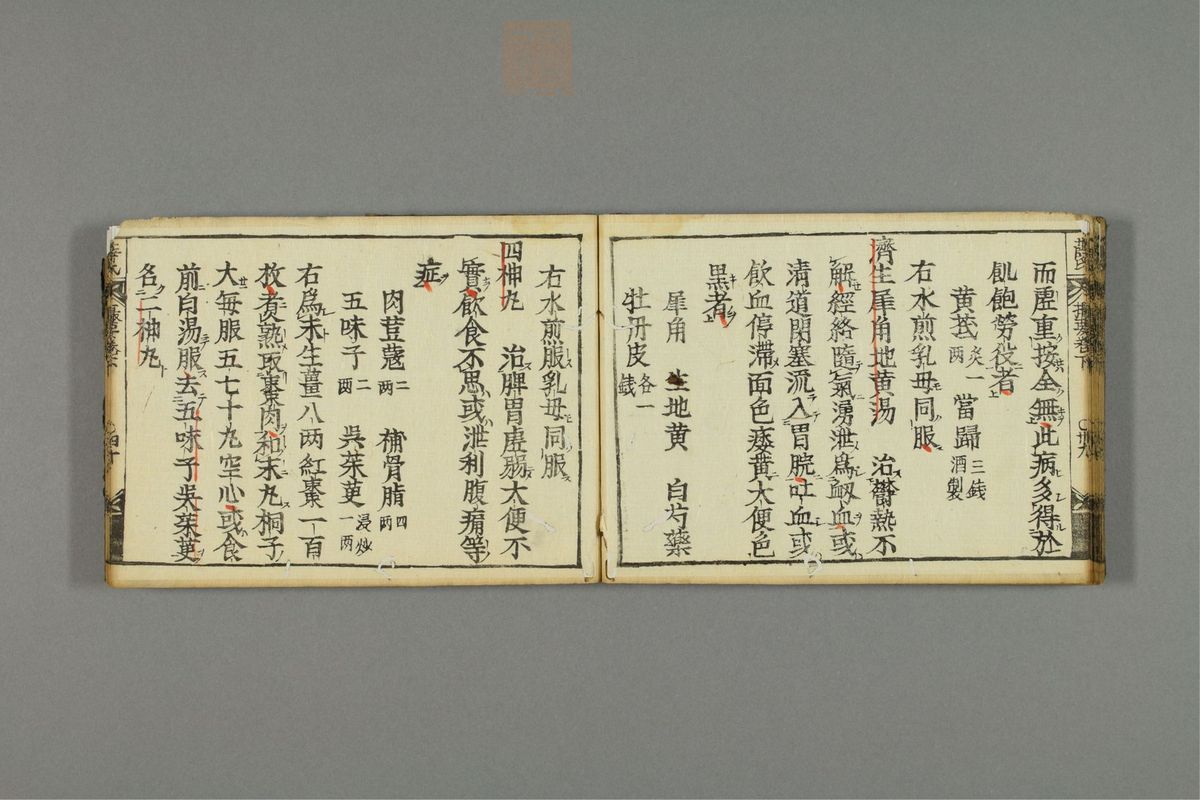 而虛重按全無此病多得於
飢飽勞役者
黄芪炙一两 當歸三錢酒製
右水煎乳母同服
濟生犀角地黄湯 治鬱熱不
解經絡隨氣湧泄爲衂血或
清道閉塞流入胃脘吐血或
飲血停滯面色痿黄大便色
黒者
犀角 生地黄 白芍藥
牡丹皮各一錢
右水煎服乳母同服
四神丸 治脾胃虛弱大便不
實飲食不思或泄利腹痛等
症
肉荳蔻二两 補骨脂四两
五味子二两 吳茱萸浸炒一两
右爲末生薑八两紅棗一百
枚煑熟取棗肉和末丸桐子
大每服五七十丸空心或食
前白湯服去五味子吳茱萸
名二神丸